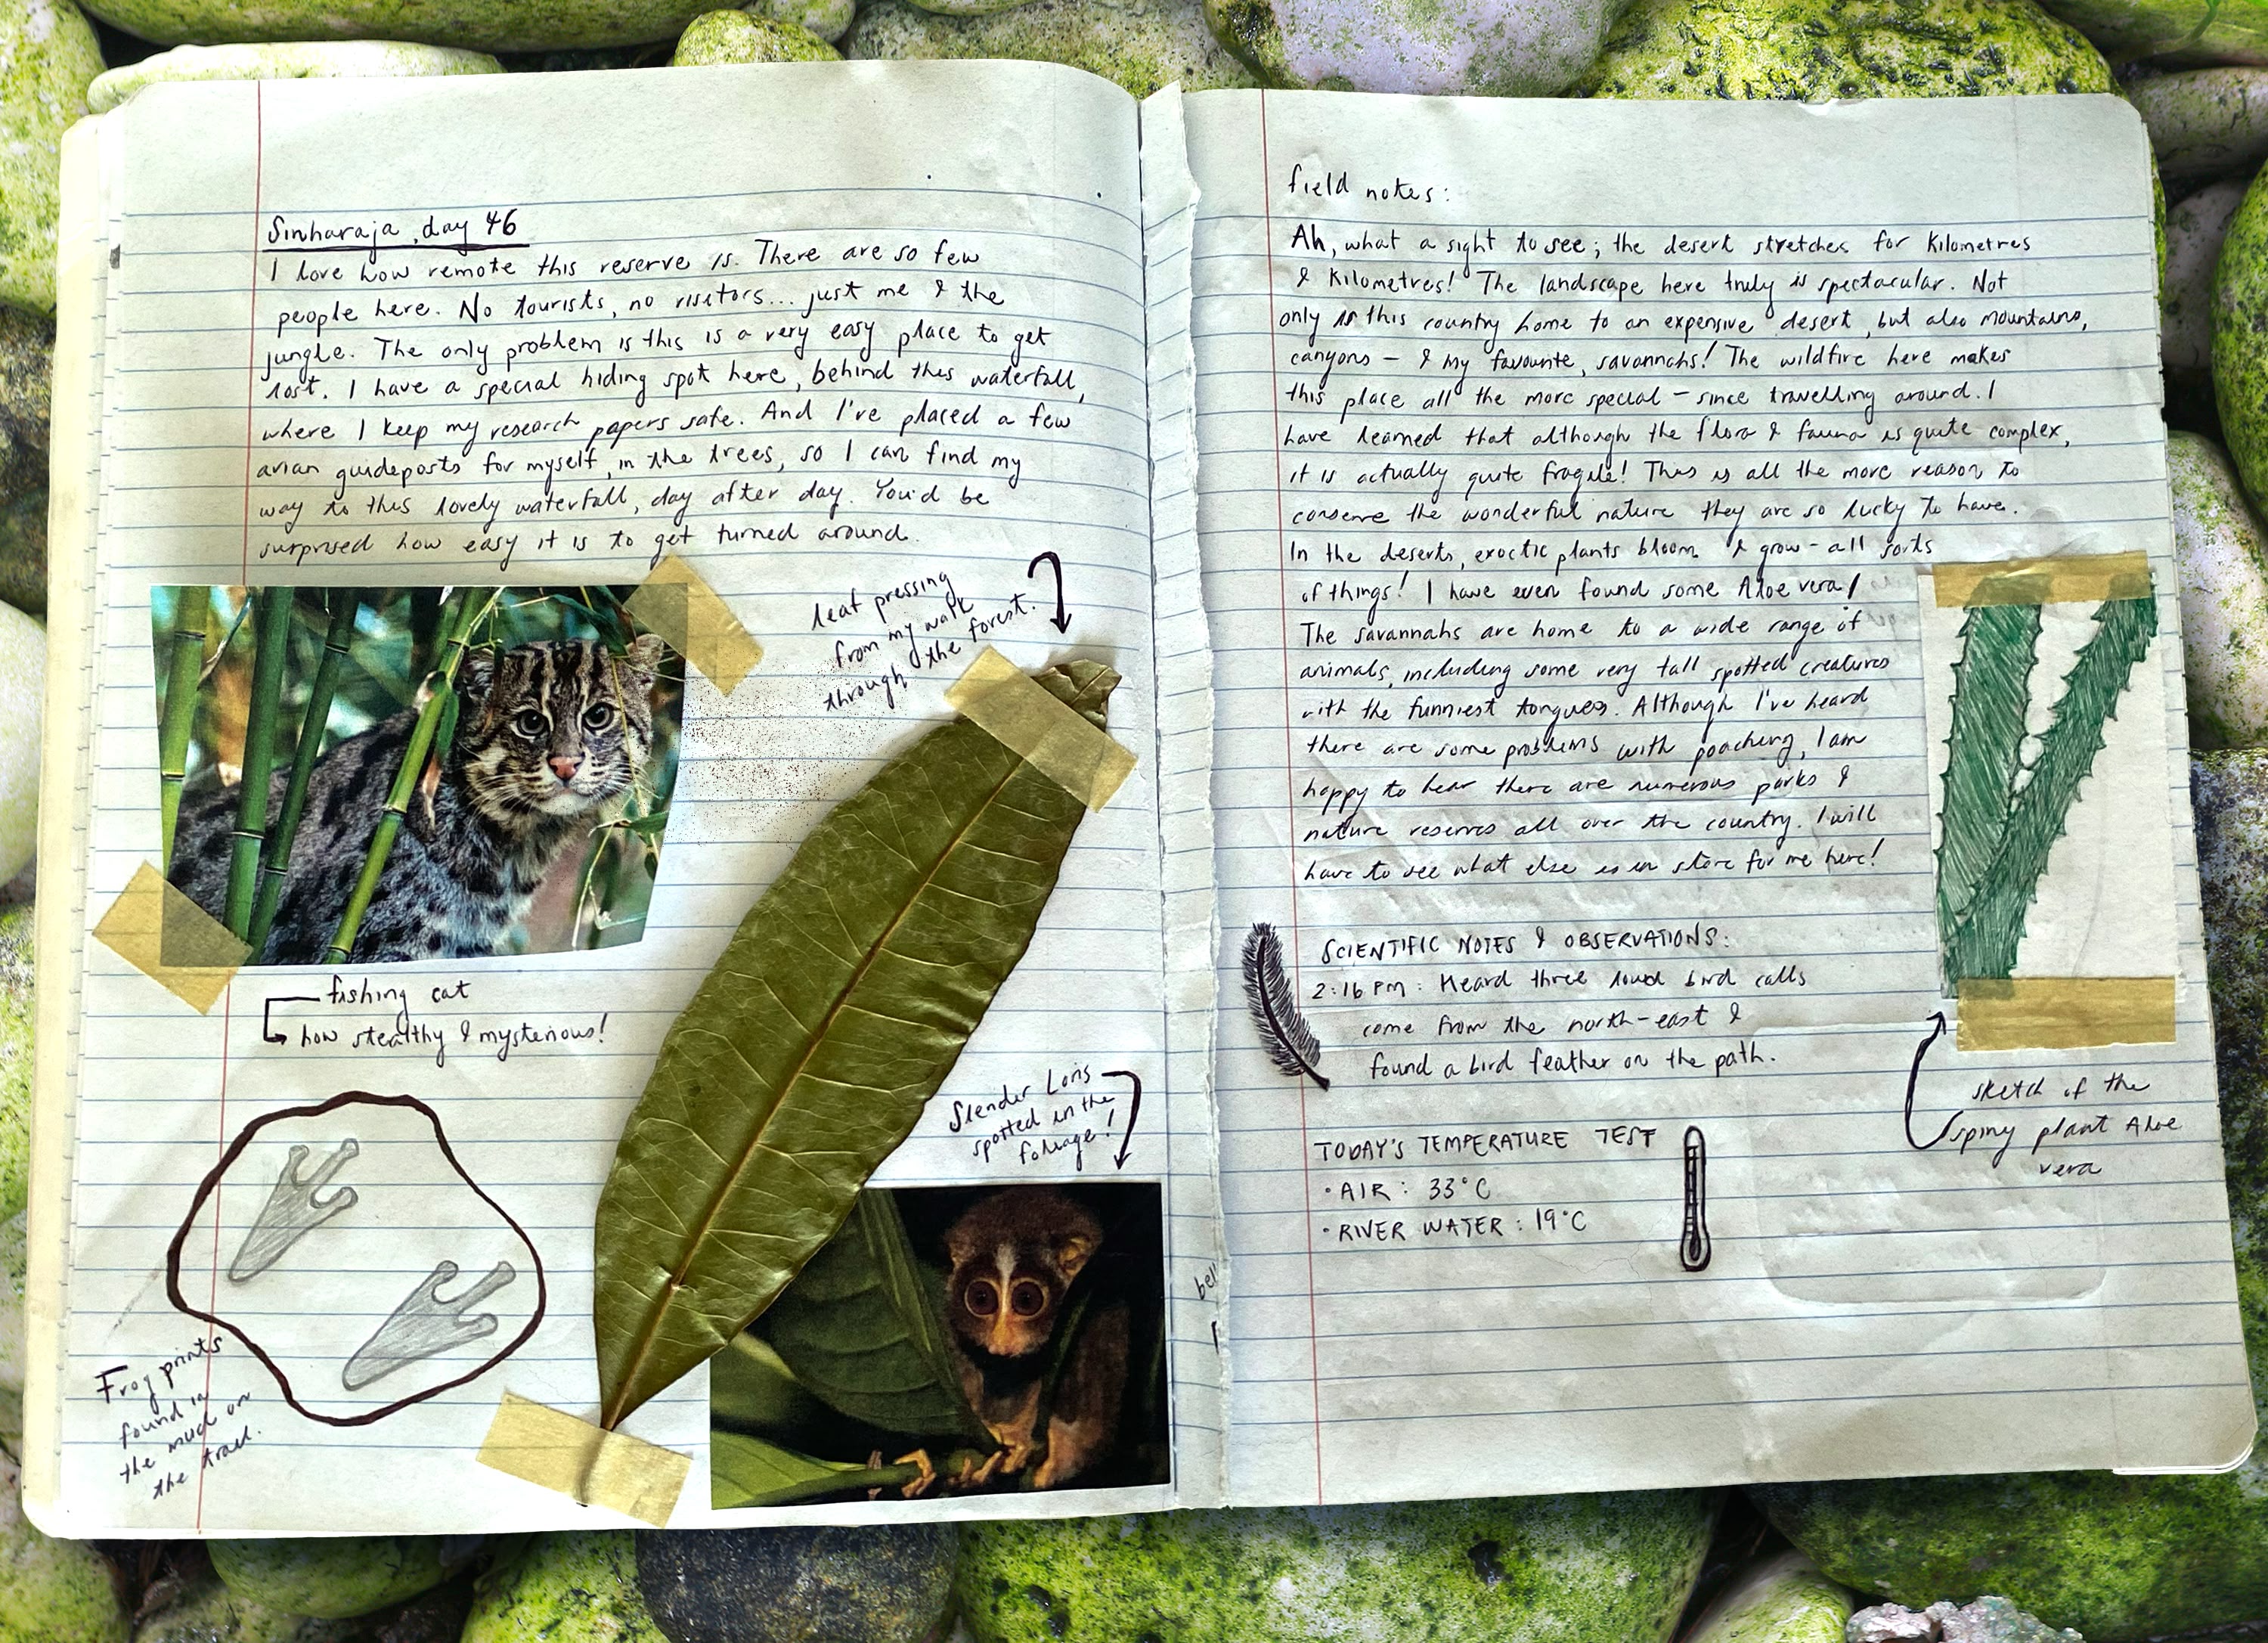 Sinharaja, day 46
I love how remote this reserve is. There are so few
people here. No tourists, no visitors... just me & the
jungle. The only problem is this is a very easy place to get
lost. I have a special hiding spot here, behind this waterfall,
where I keep my research papers safe. And I've placed a few
avian guideposts for myself, in the trees, so I can find my
way to this lovely waterfall, day after day. You'd be
surprised how easy it is to get turned around.
leaf pressing
from my walk
through the forest.
fishing cat
how stealthy & mysterious!
Slender Loris
spotted in the
foliage!
Frog prints
found in
the mud on
the trail.
bell
field notes:
Ah, what a sight to see; the desert stretches for kilometres
& kilometres! The landscape here truly is spectacular. Not
only is this country home to an expensive desert, but also mountains,
canyons - & my favourite, savannahs! The wildfire here makes
this place all the more special - since travelling around. I
have learned that although the flora & fauna is quite complex,
it is actually quite fragile! This is all the more reason to
conserve the wonderful nature they are so lucky to have.
In the deserts, exoctic plants bloom & grow - all sorts
of things! I have even found some Aloe vera!
The savannahs are home to a wide range of
animals, including some very tall spotted creatures
with the funniest tongues. Although I've heard
there are some problems with poaching, I am
happy to hear there are numerous parks &
nature reserves all over the country. I will
have to see what else is in store for me here!
SCIENTIFIC NOTES & OBSERVATIONS:
2:16 PM: Heard three loud bird calls
come from the north-east &
found a bird feather on the path.
TODAY'S TEMPERATURE TEST
• AIR: 33°C
• RIVER WATER: 19°C
sketch of the
spiny plant Aloe
vera